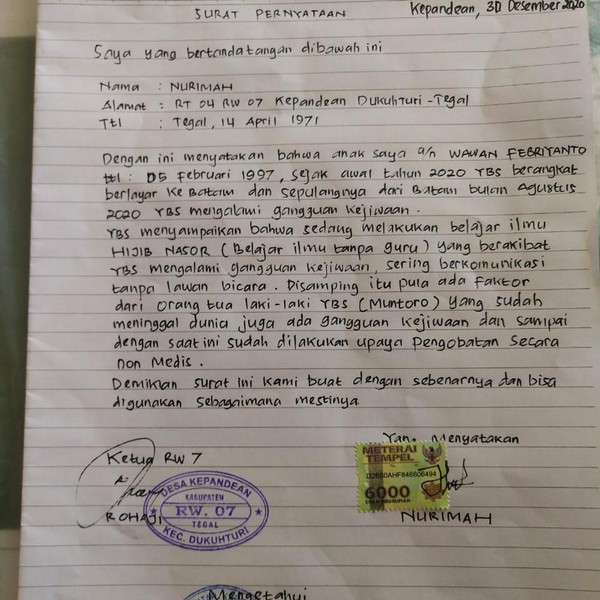 SURAT PERNYATAAN
Kepandean, 30 Desember 2020
Saya yang bertandatangan dibawah ini
Nama : NURIMAH
Alamat : RT 04 RW 07 Kepandean Dukuhturi - Tegal
Ttl : Tegal, 14 April 1971
Dengan ini menyatakan bahwa anak saya a/n WAWAN FEBRIYANTO
ttl : 05 Februari 1997, sejak awal tahun 2020 YBS berangkat
berlayar ke Batam dan sepulangnya dari Batam bulan Agustus
2020 YBS mengalami gangguan kejiwaan.
YBS menyampaikan bahwa sedang melakukan belajar ilmu
HIJIB NASOR (Belajar ilmu tanpa guru) yang berakibat
YBS mengalami gangguan kejiwaan, sering berkomunikasi
tanpa lawan bicara. Disamping itu pula ada faktor
dari orang tua laki-laki YBS (Muntoro) yang sudah
meninggal dunia juga ada gangguan kejiwaan dan sampai
dengan saat ini sudah dilakukan upaya pengobatan secara
non Medis.
Demikian surat ini kami buat dengan sebenarnya dan bisa
digunakan sebagaimana mestinya
Yan. Menyatakan
Ketua RW 7
METERAI
TEMPEL
6000
ROHAJI
NURIMAH
DESA KEPANDEAN
KABUPATEN
RW. 07
TEGAL
KEC. DUKUHTURI
Mengetahui